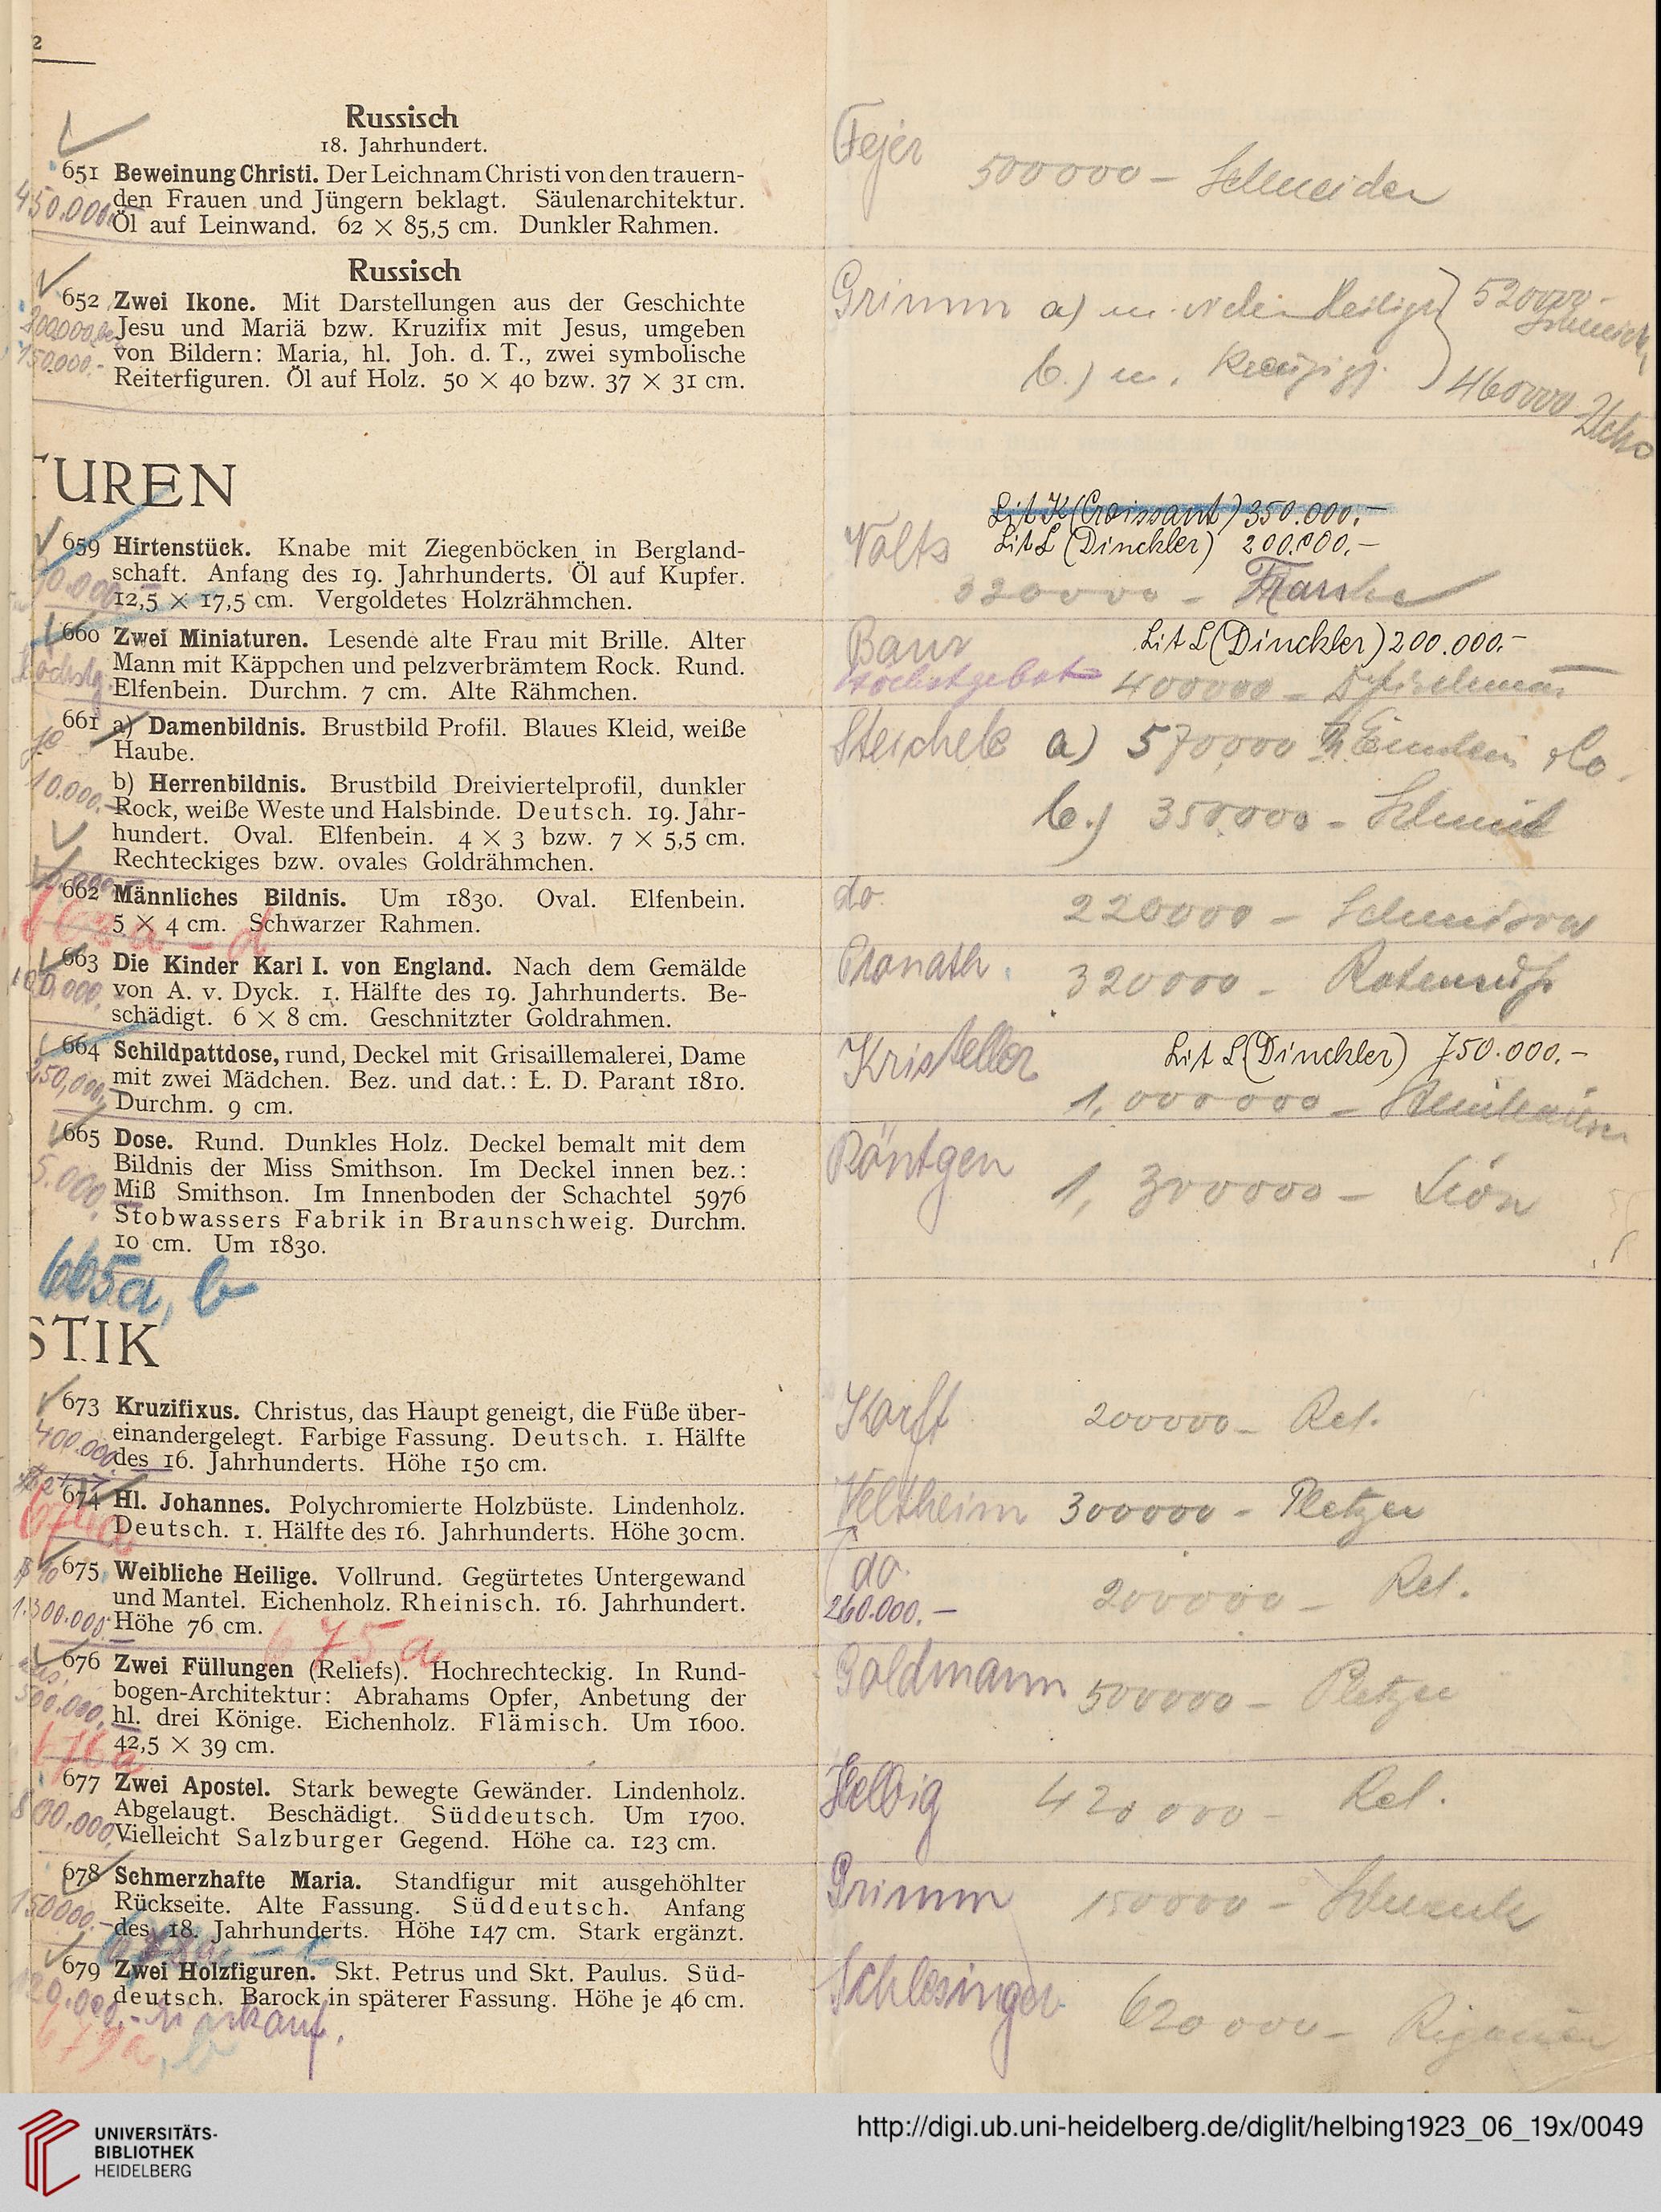 2
Russisch
18. Jahrhundert.
651 Beweinung Christi. Der Leichnam Christi von den trauern-
den Frauen und Jüngern beklagt. Säulenarchitektur.
Öl auf Leinwand. 62 × 85,5 cm. Dunkler Rahmen.
450.000
Fejer
500000 – Schneider
Russisch
652 Zwei Ikone. Mit Darstellungen aus der Geschichte
Jesu und Mariä bzw. Kruzifix mit Jesus, umgeben
von Bildern: Maria, hl. Joh. d. T., zwei symbolische
Reiterfiguren. Öl auf Holz. 50 × 40 bzw. 37 × 31 cm.
150.000.-
Grimm a) m. vielen Heiligen 520000 –
b.) m. 460000
TUREN
659 Hirtenstück. Knabe mit Ziegenböcken in Bergland-
schaft. Anfang des 19. Jahrhunderts. Öl auf Kupfer.
12,5 × 17,5 cm. Vergoldetes Holzrähmchen.
Lit K (Croissant) 350.000.–
Nolts Lit L (Dinckler) 200.000.–
320000 –
660 Zwei Miniaturen. Lesende alte Frau mit Brille. Alter
Mann mit Käppchen und pelzverbrämtem Rock. Rund.
Elfenbein. Durchm. 7 cm. Alte Rähmchen.
Baur Lit L (Dinckler) 200.000.–
Höchstgebot 400000 –
661 a) Damenbildnis. Brustbild Profil. Blaues Kleid, weiße
Haube.
je
10.000.–
b) Herrenbildnis. Brustbild Dreiviertelprofil, dunkler
Rock, weiße Weste und Halsbinde. Deutsch. 19. Jahr-
hundert. Oval. Elfenbein. 4 × 3 bzw. 7 × 5,5 cm.
Rechteckiges bzw. ovales Goldrähmchen.
Steichele a) 570000
b.) 350000 –
662 Männliches Bildnis. Um 1830. Oval. Elfenbein.
5 × 4 cm. Schwarzer Rahmen.
do 220000 –
663 Die Kinder Karl I. von England. Nach dem Gemälde
von A. v. Dyck. 1. Hälfte des 19. Jahrhunderts. Be-
schädigt. 6 × 8 cm. Geschnitzter Goldrahmen.
320000 –
664 Schildpattdose, rund, Deckel mit Grisaillemalerei, Dame
mit zwei Mädchen. Bez. und dat.: L. D. Parant 1810.
Durchm. 9 cm.
Kristeller Lit L (Dinckler) 750.000.–
1,000000 –
665 Dose. Rund. Dunkles Holz. Deckel bemalt mit dem
Bildnis der Miss Smithson. Im Deckel innen bez.:
Miß Smithson. Im Innenboden der Schachtel 5976
Stobwassers Fabrik in Braunschweig. Durchm.
10 cm. Um 1830.
5.000.
Röntgen 1,300000 – Lion
665a, b
STIK
673 Kruzifixus. Christus, das Haupt geneigt, die Füße über-
einandergelegt. Farbige Fassung. Deutsch. 1. Hälfte
des 16. Jahrhunderts. Höhe 150 cm.
400.000
Korff 200000 – Ret.
674 Hl. Johannes. Polychromierte Holzbüste. Lindenholz.
Deutsch. 1. Hälfte des 16. Jahrhunderts. Höhe 30 cm.
674a
Veltheim 300000 – Pletzer
675 Weibliche Heilige. Vollrund. Gegürtetes Untergewand
und Mantel. Eichenholz. Rheinisch. 16. Jahrhundert.
Höhe 76 cm.
1.300.000.
675a
do.
260.000.– 200000 – Ret.
676 Zwei Füllungen (Reliefs). Hochrechteckig. In Rund-
bogen-Architektur: Abrahams Opfer, Anbetung der
hl. drei Könige. Eichenholz. Flämisch. Um 1600.
42,5 × 39 cm.
500.000.
676a
Goldmann 500000 – Pletzer
677 Zwei Apostel. Stark bewegte Gewänder. Lindenholz.
Abgelaugt. Beschädigt. Süddeutsch. Um 1700.
Vielleicht Salzburger Gegend. Höhe ca. 123 cm.
800.000.
Helbig 420000 – Ret.
678 Schmerzhafte Maria. Standfigur mit ausgehöhlter
Rückseite. Alte Fassung. Süddeutsch. Anfang
des 18. Jahrhunderts. Höhe 147 cm. Stark ergänzt.
150000.–
Grimm 150000 –
679 Zwei Holzfiguren. Skt. Petrus und Skt. Paulus. Süd-
deutsch. Barock in späterer Fassung. Höhe je 46 cm.
679a, b
Schlesinger 620000 –
UNIVERSITÄTS-
BIBLIOTHEK
HEIDELBERG
http://digi.ub.uni-heidelberg.de/diglit/helbing1923_06_19x/0049